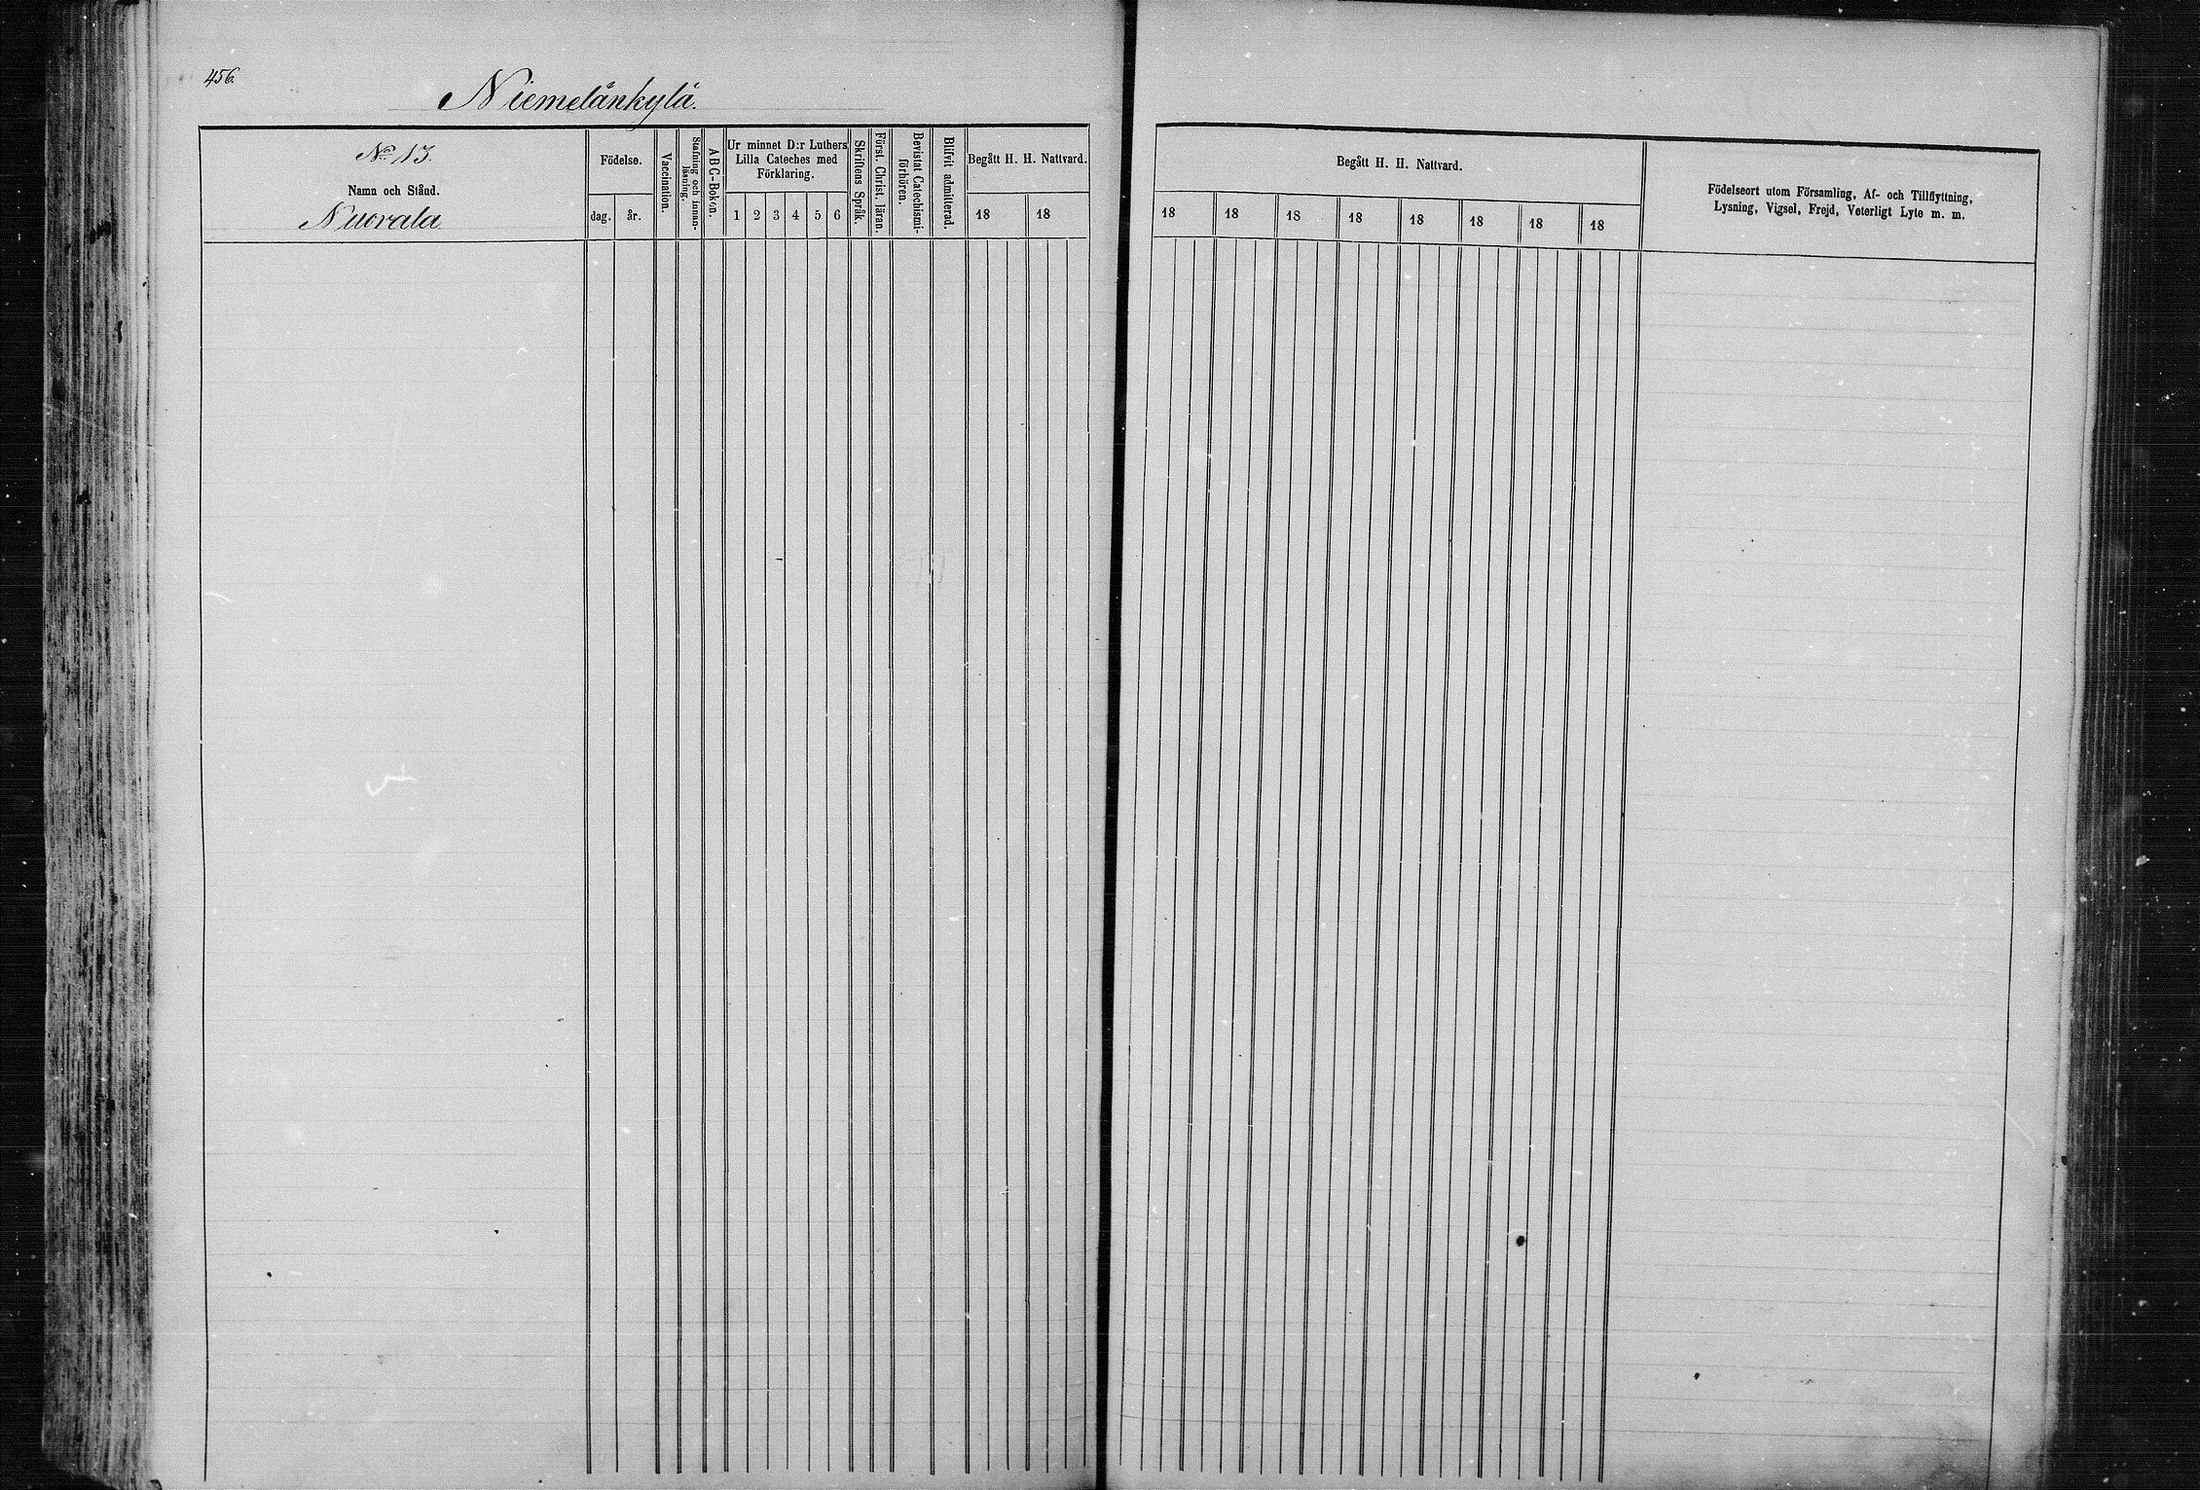 456.
Niemelänkylä.
No 13.
Namn och Stånd.
Nuorala.
Födelse.
dag. år.
Vaccination.
Stafning och innan-
läsning.
A B C-Boken.
Ur minnet D:r Luthers
Lilla Cateches med
Förklaring.
1 2 3 4 5 6
Skriftens Språk.
Först. Christ. läran.
Bevistat Catechismi-
förhören.
Blifvit admitterad.
Begått H. H. Nattvard.
18 18
Begått H. H. Nattvard.
18 18 18 18 18 18 18 18
Födelseort utom Församling, Af- och Tillflyttning,
Lysning, Vigsel, Frejd, Veterligt Lyte m. m.